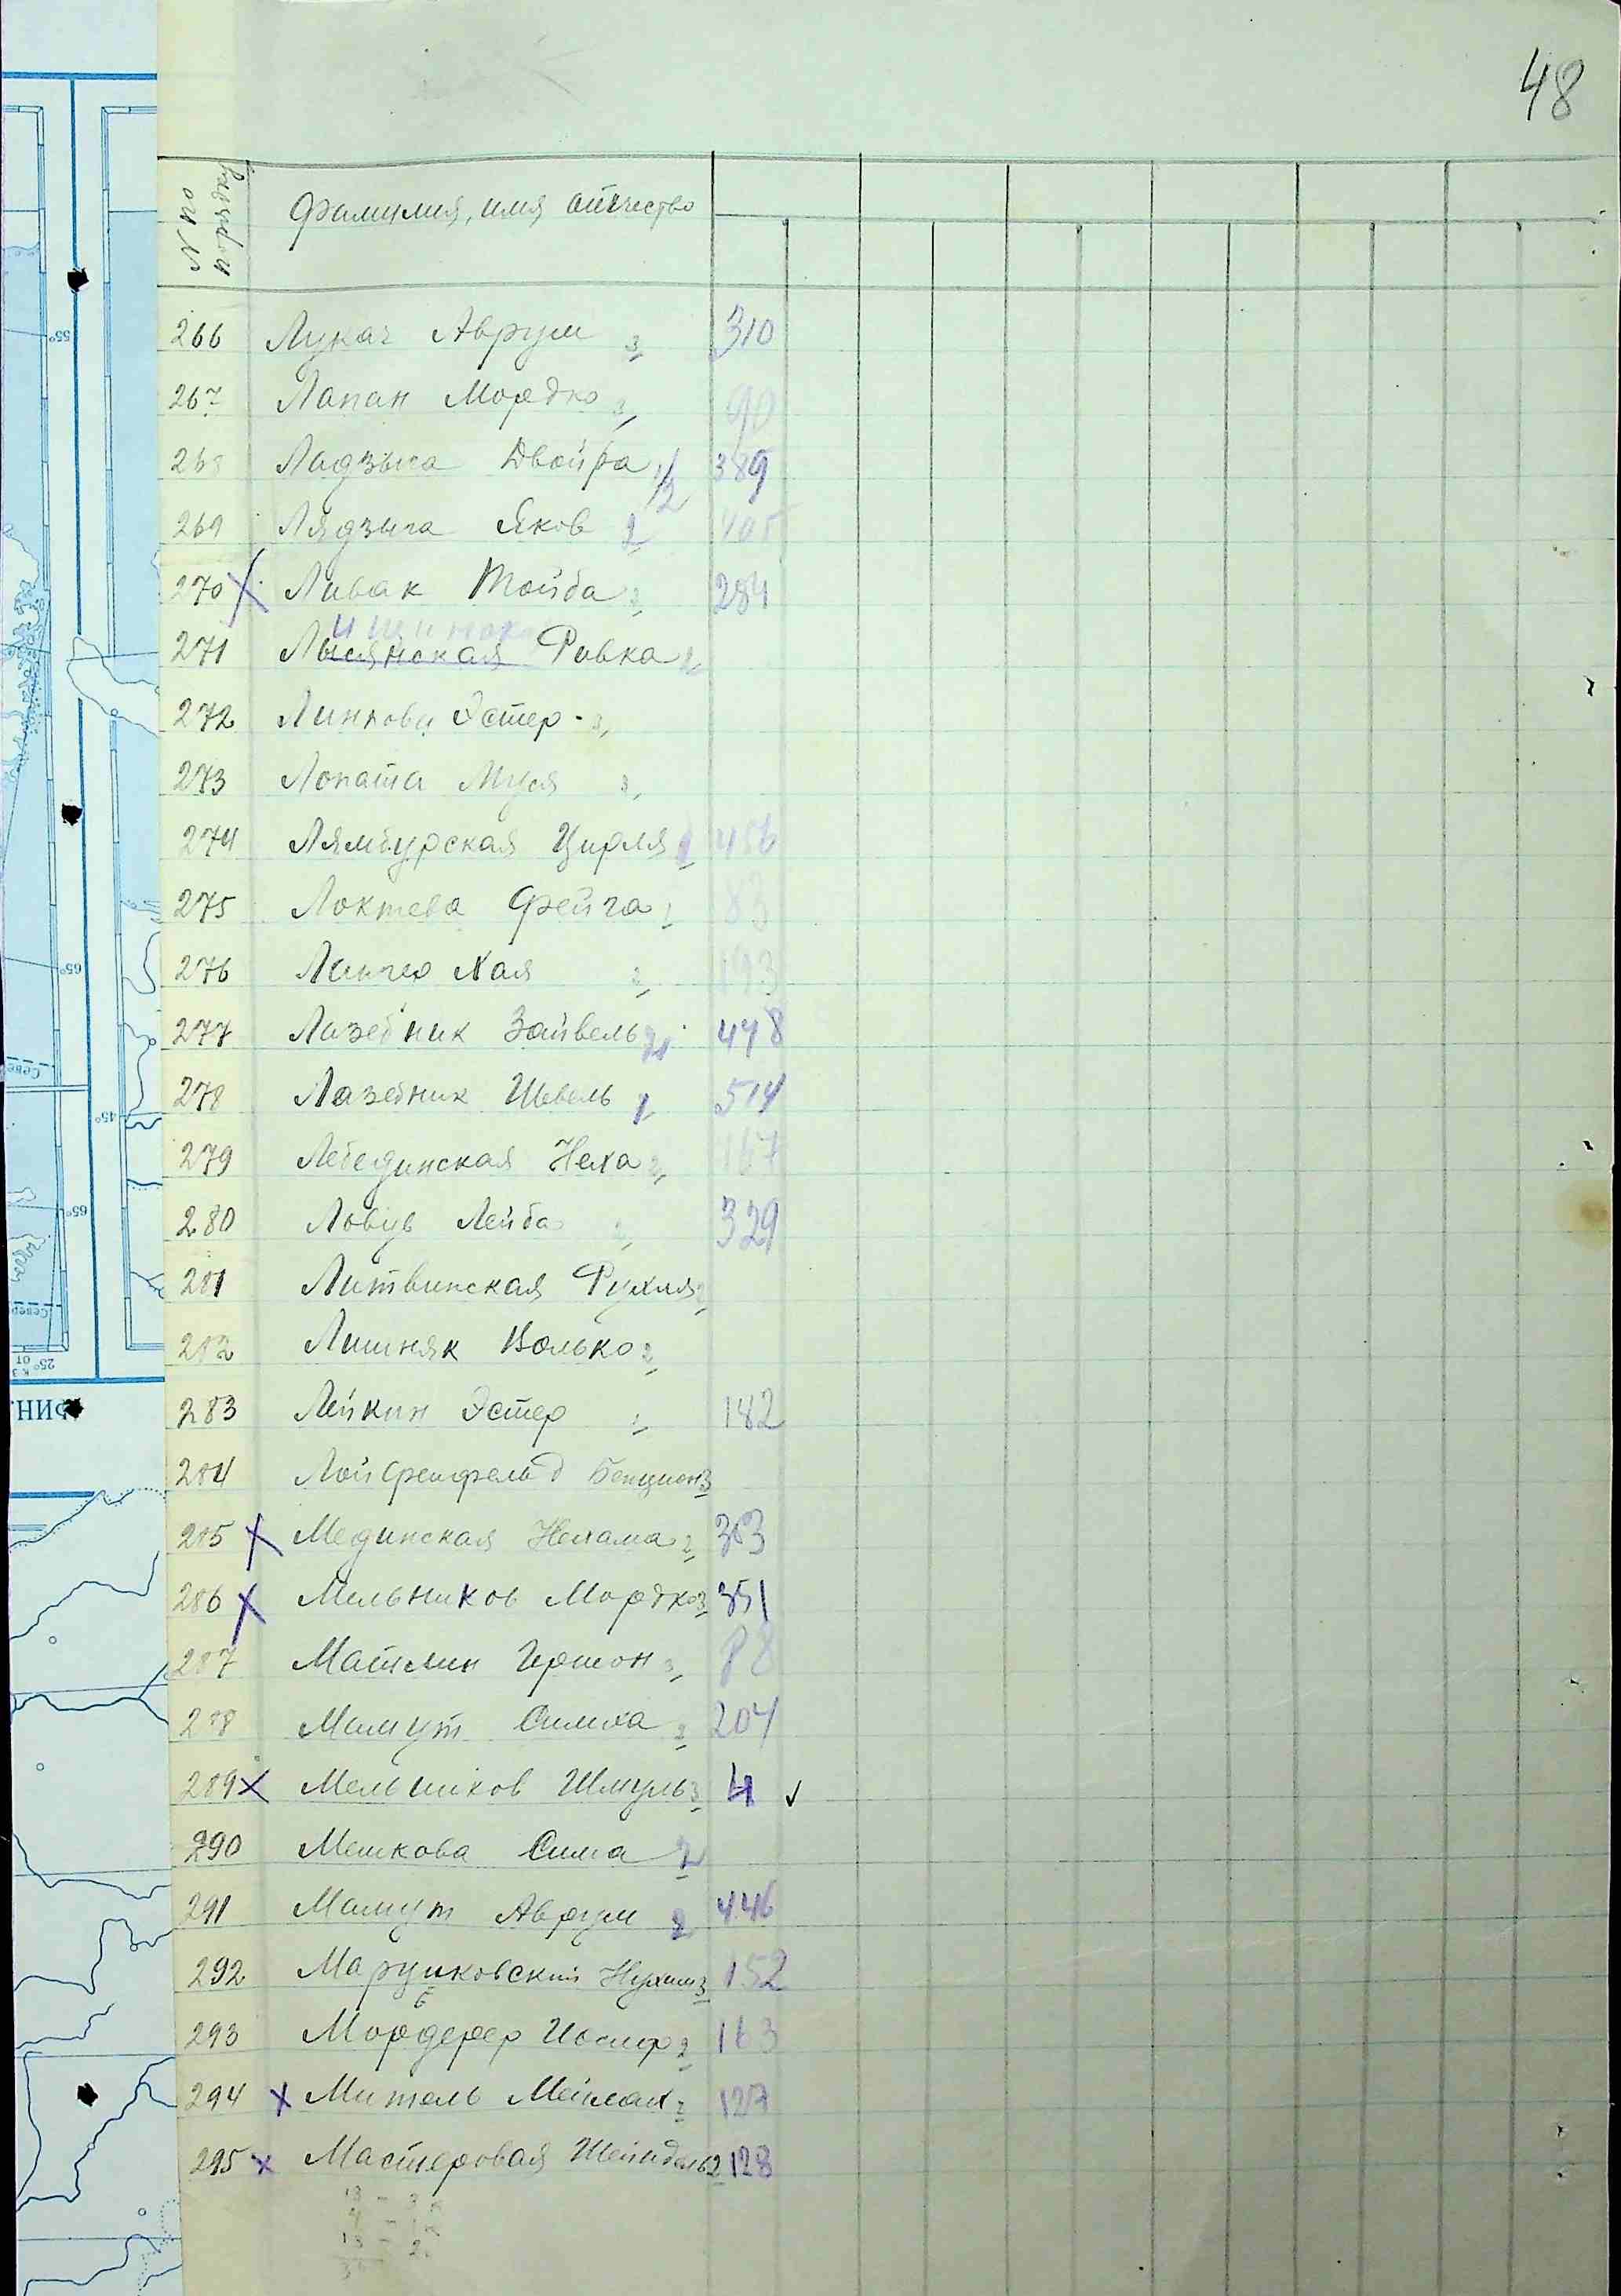 48
№ по порядку
Фамилия, имя отчество
266 Лукач Аврум 3 310
267 Лапан Мордко 3 90
268 Ладзыга Двойра 1/2 389
269 Лядзыга Яков 2 405
270 X Ливак Тойба 2 284
271 Лысянская Ривка 2
272 Линкова Эстер - 3
273 Лопата Муся 3
274 Лямбурская Цирля 2 456
275 Локтева Фейга 2 83
276 Лингер Хая 2 193
277 Лазебник Зайвель 478
278 Лазебник Шевель 2 514
279 Лебединская Неха 2 167
280 Ловув Лейба 2 329
281 Литвинская Рухля 2
282 Лишняк Волько 2
283 Лейкин Эстер 2 182
284 Лойференфельд Бенцион 3
285 X Мединская Нехама 2 363
286 X Мельников Мордко 3 351
287 Матлин Гершон 3 88
288 Мамут Симха 2 204
289 X Мельников Шмуль 3 4 ✓
290 Мешкова Сима 2
291 Мамут Аврум 2 446
292 Марушковский Нухим 3 152
293 Мордерер Иосиф 2 163
294 X Митель Мейлах 2 127
295 X Мастеровая Шейндель 2 128
55°
65°
45°
65°
25°
РИН.